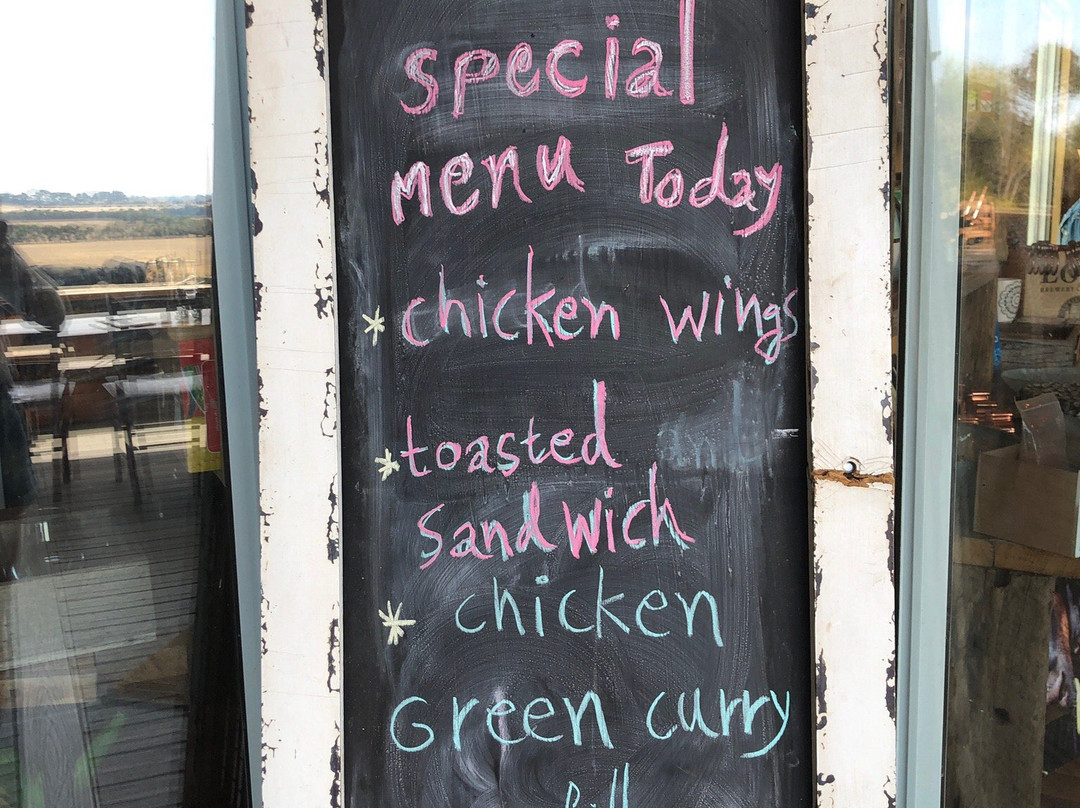 special
menu Today
* chicken wings
* toasted
sandwich
* chicken
Green curry